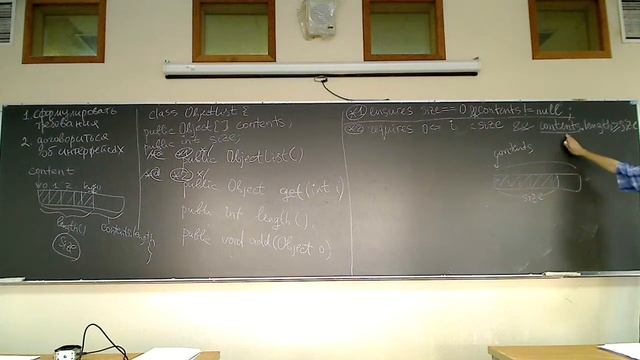 1. сформулировать
требования
2. договориться
об интерфейсах
content
0 1 2
length() contents.length
size
class ObjectList {
public Object[] contents,
public int size;
public ObjectList()
public Object get(int i)
public int length(),
public void add(Object o)
}
ensures size==0 && contents!=null;
requires 0<= i <size && contents.length>=size
contents
size